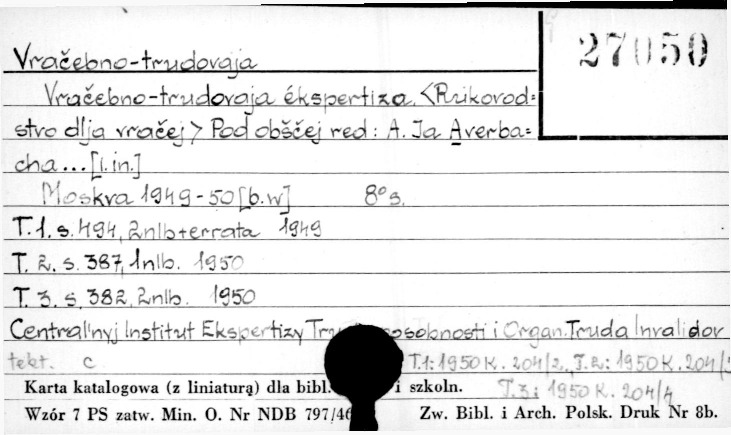 27050
Vračebno-trudovaja
Vračebno-trudovaja ékspertiza. <Rukovod=
stvo dlja vračej> Pod obščej red: A. Ja Averba=
cha...[i.in.]
Moskva 1949-50[b.w] 8° s.
T.1. s. 494, 2nlb+errata 1949
T. 2. s. 387, 1nlb. 1950
T. 3. s. 382, 2nlb. 1950
Central'nyj Institut Ekspertizy i Organ. Truda Invalidov
tekt. c T.1: 1950 K. 204/2, T.2: 1950 K. 204/3
Karta katalogowa (z liniaturą) dla bibl. i szkoln. T.3: 1950 K. 204/4
Wzór 7 PS zatw. Min. O. Nr NDB 797/46 Zw. Bibl. i Arch. Polsk. Druk Nr 8b.